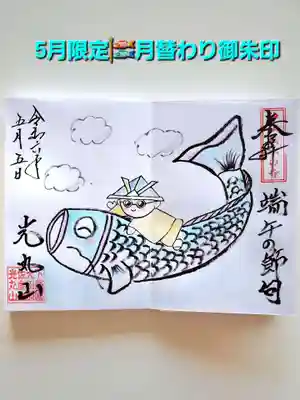 5月限定🎏月替わり御朱印
奉拝
端午の節句
令和六年
五月五日
光丸山